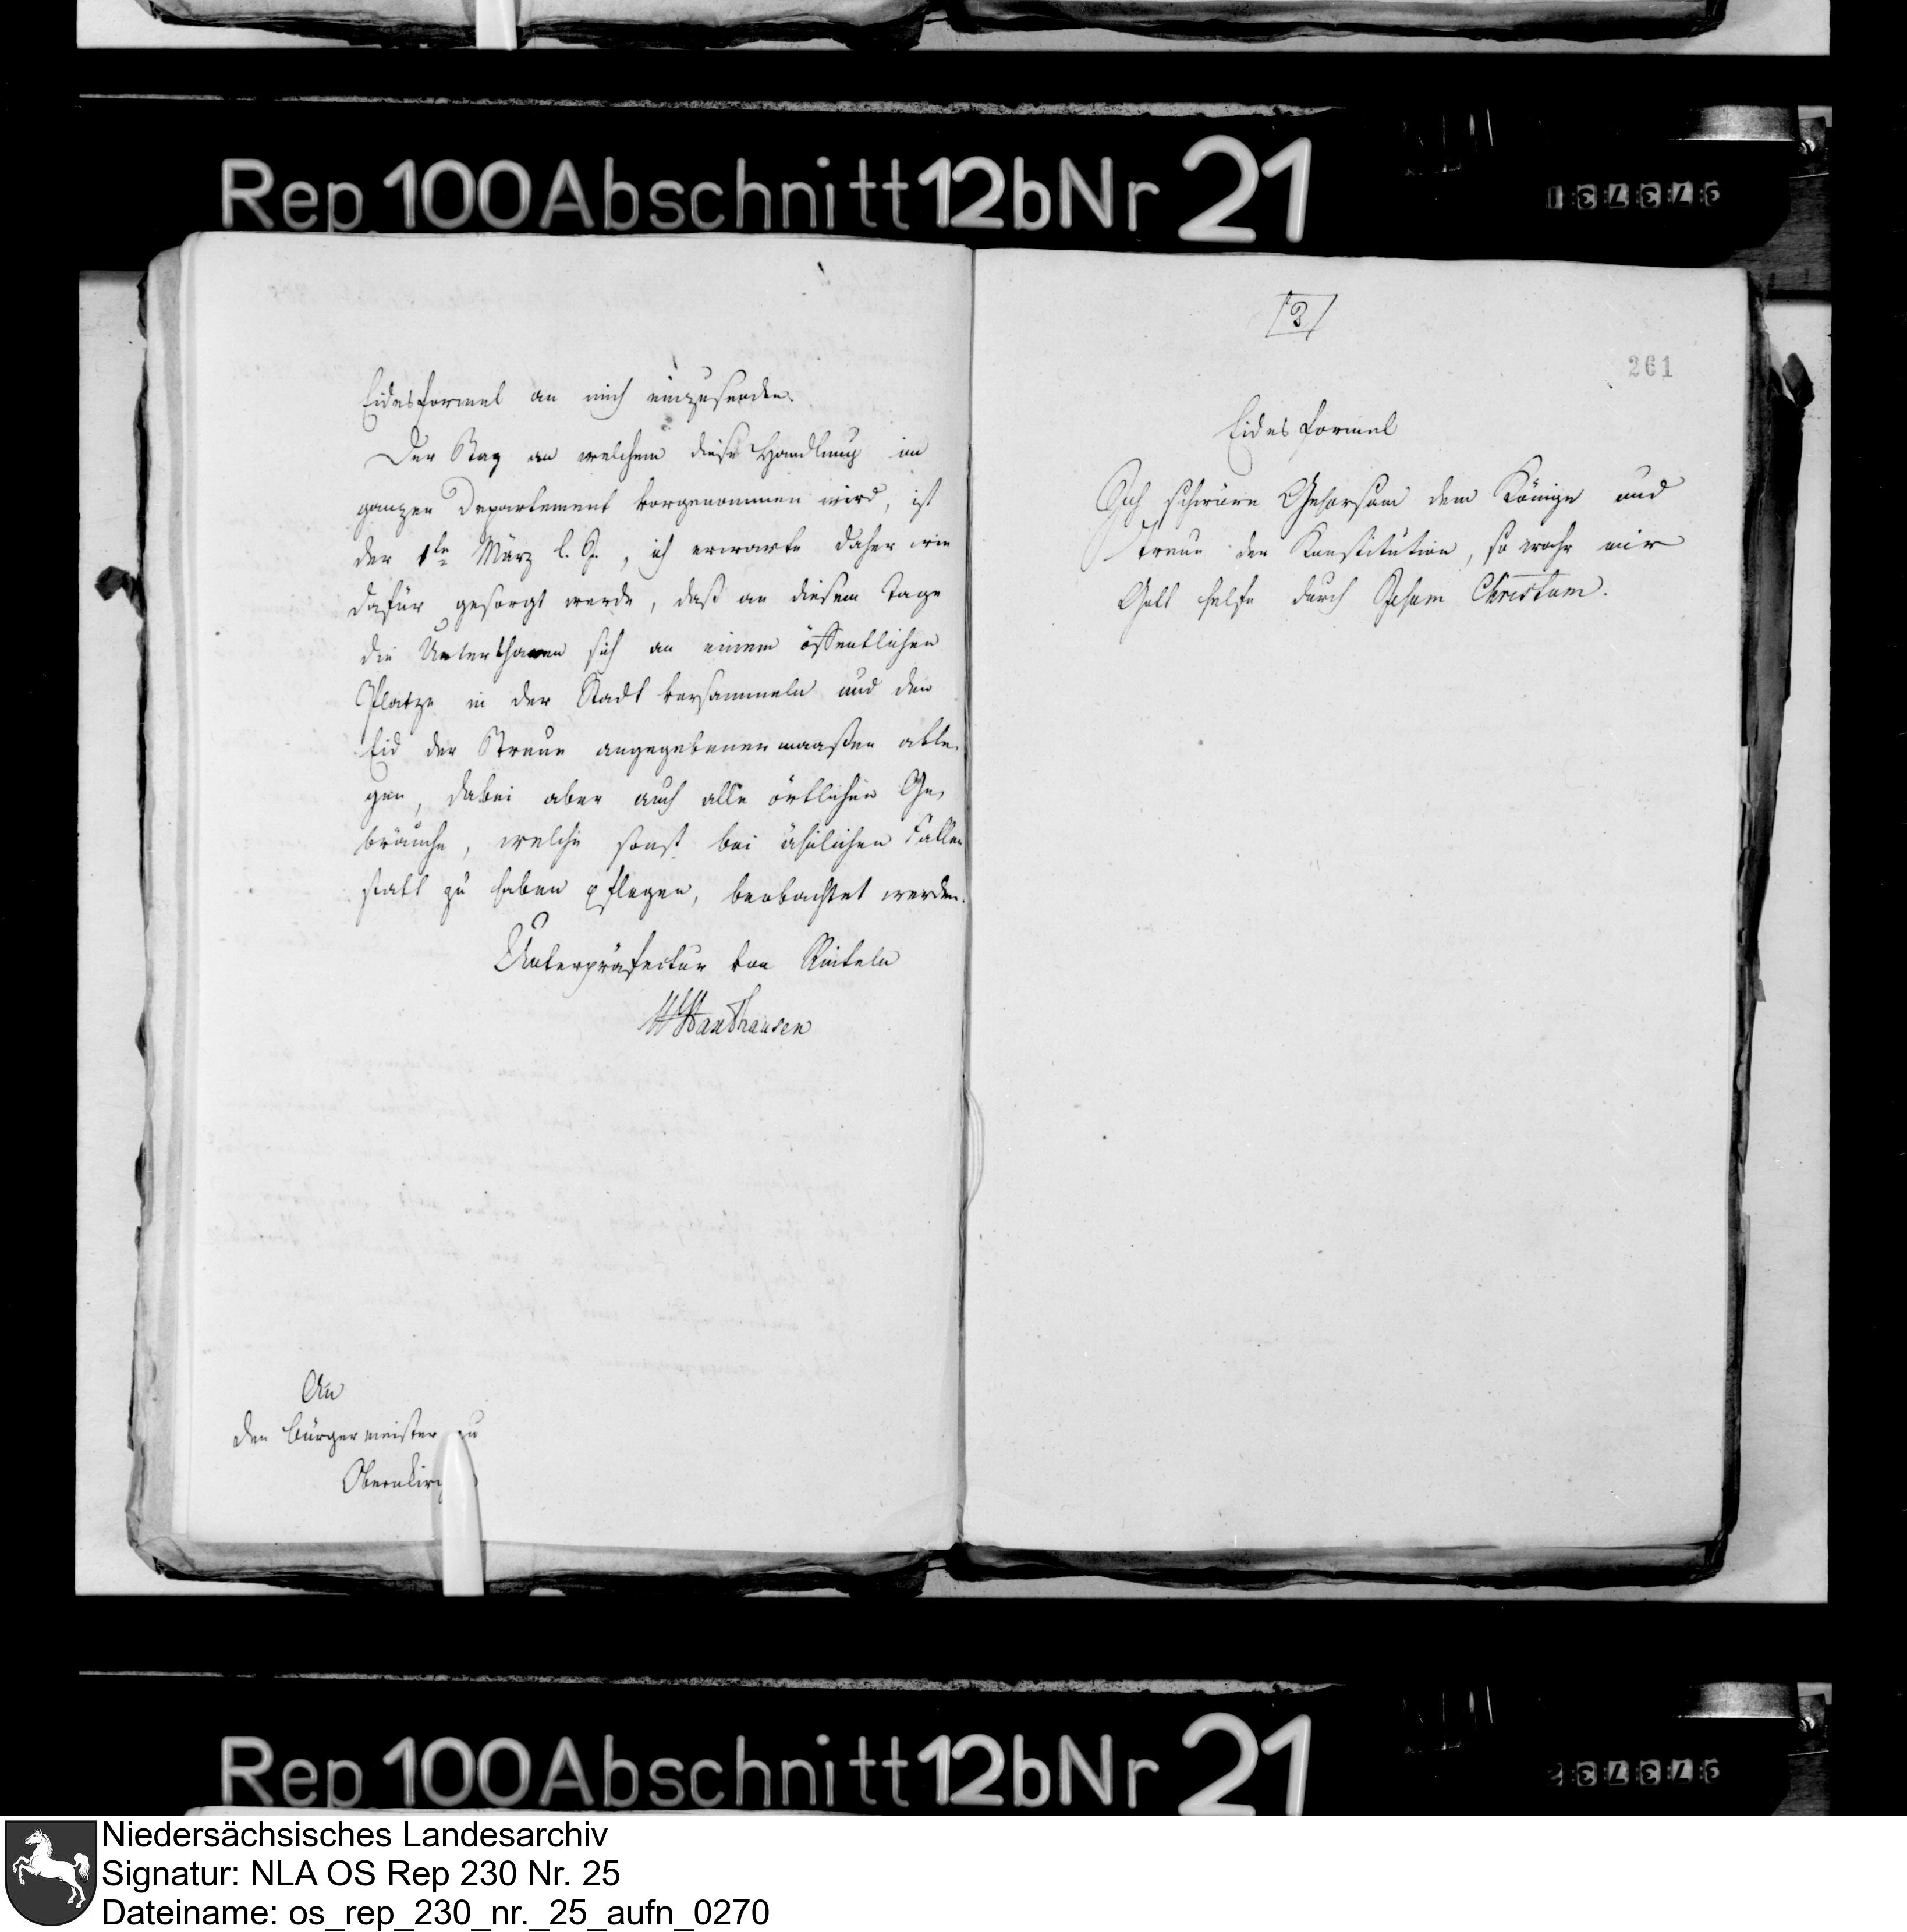 Rep 100 Abschnitt 12b Nr 21
Eidesformel an mich einzusenden.
Der Tag an welchem diese Handlung im
ganzen Departement vorgenommen wird, ist
der 1te März l. J., ich erwarte daher wie
dafür gesorgt werde, daß an diesem Tage
die Unterthanen sich an einem öffentlichen
Platze in der Stadt versammeln und den
Eid der Treue angegebenermaaßen able-
gen, dabei aber auch alle örtlichen Ge-
bräuche, welche sonst bei ähnlichen Fällen
statt zu haben pflegen, beobachtet werden.
Unterpräfectur von Rinteln
An
den Bürgermeister zu
Obernkirch
[2]
261
Eides formel
Ich schwöre Gehorsam dem Könige und
Treue der Konstitution, so wahr mir
Gott helfe durch Jesum Christum.
Rep 100 Abschnitt 12b Nr 21
Niedersächsisches Landesarchiv
Signatur: NLA OS Rep 230 Nr. 25
Dateiname: os_rep_230_nr._25_aufn_0270